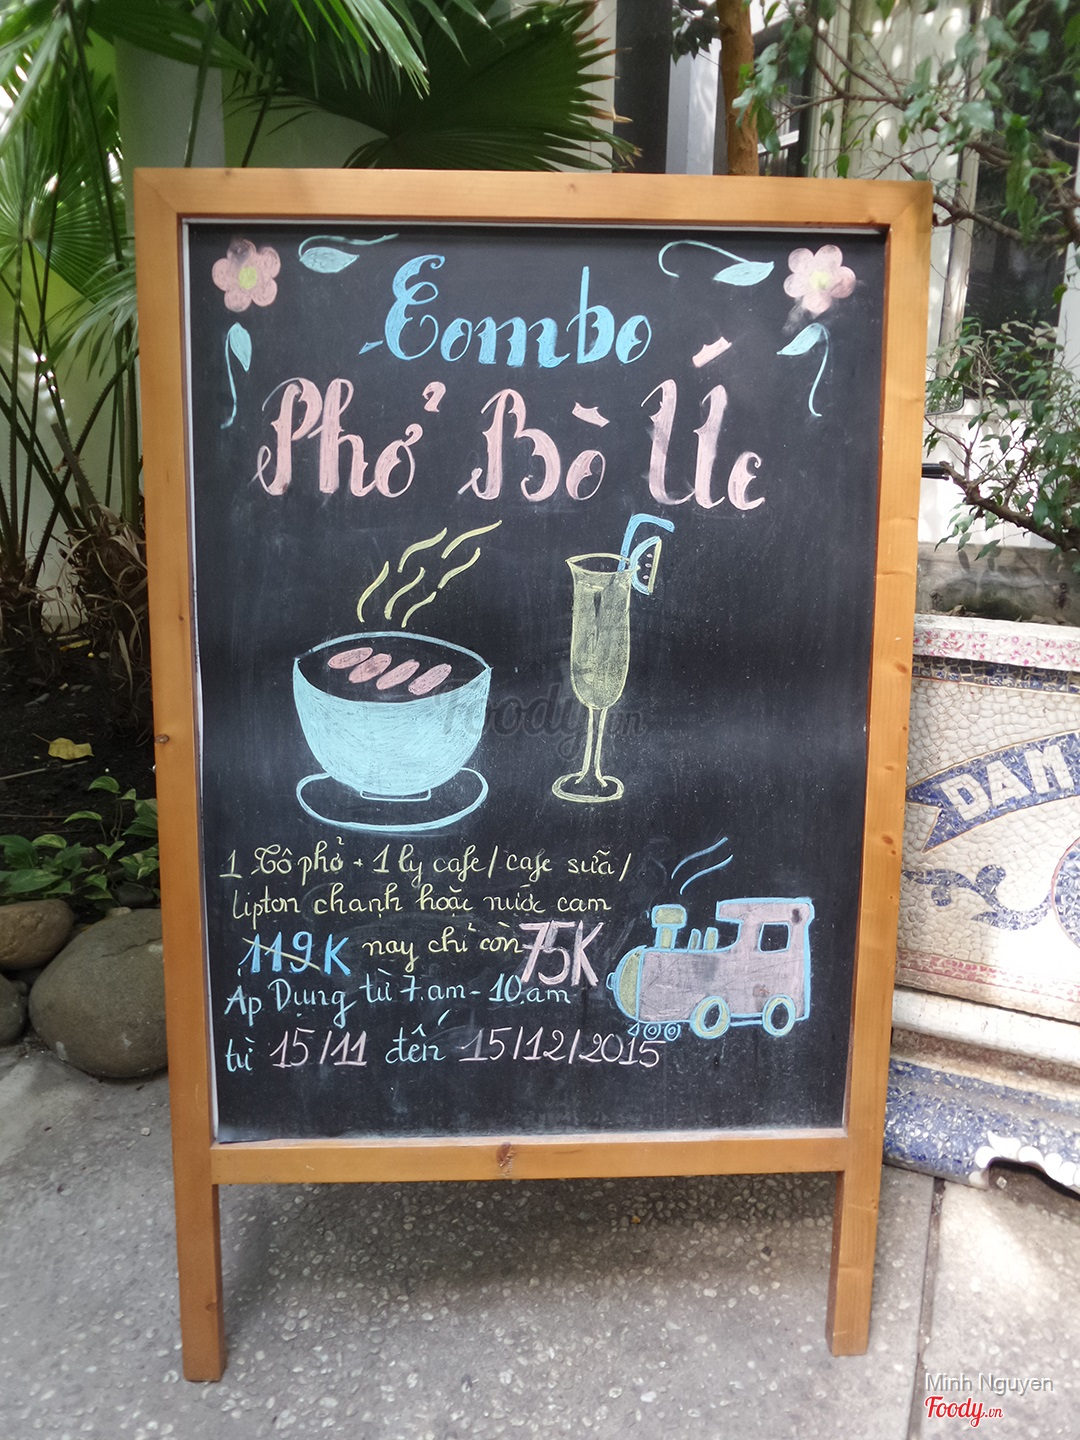 Combo
Phở Bò Úc
1 Tô phở + 1 ly cafe / cafe sữa /
Lipton chanh hoặc nước cam
119K nay chỉ còn 75K
Áp Dụng từ 7.am - 10.am
từ 15/11 đến 15/12/2015
DAM
Foody.vn
Minh Nguyen
Foody.vn